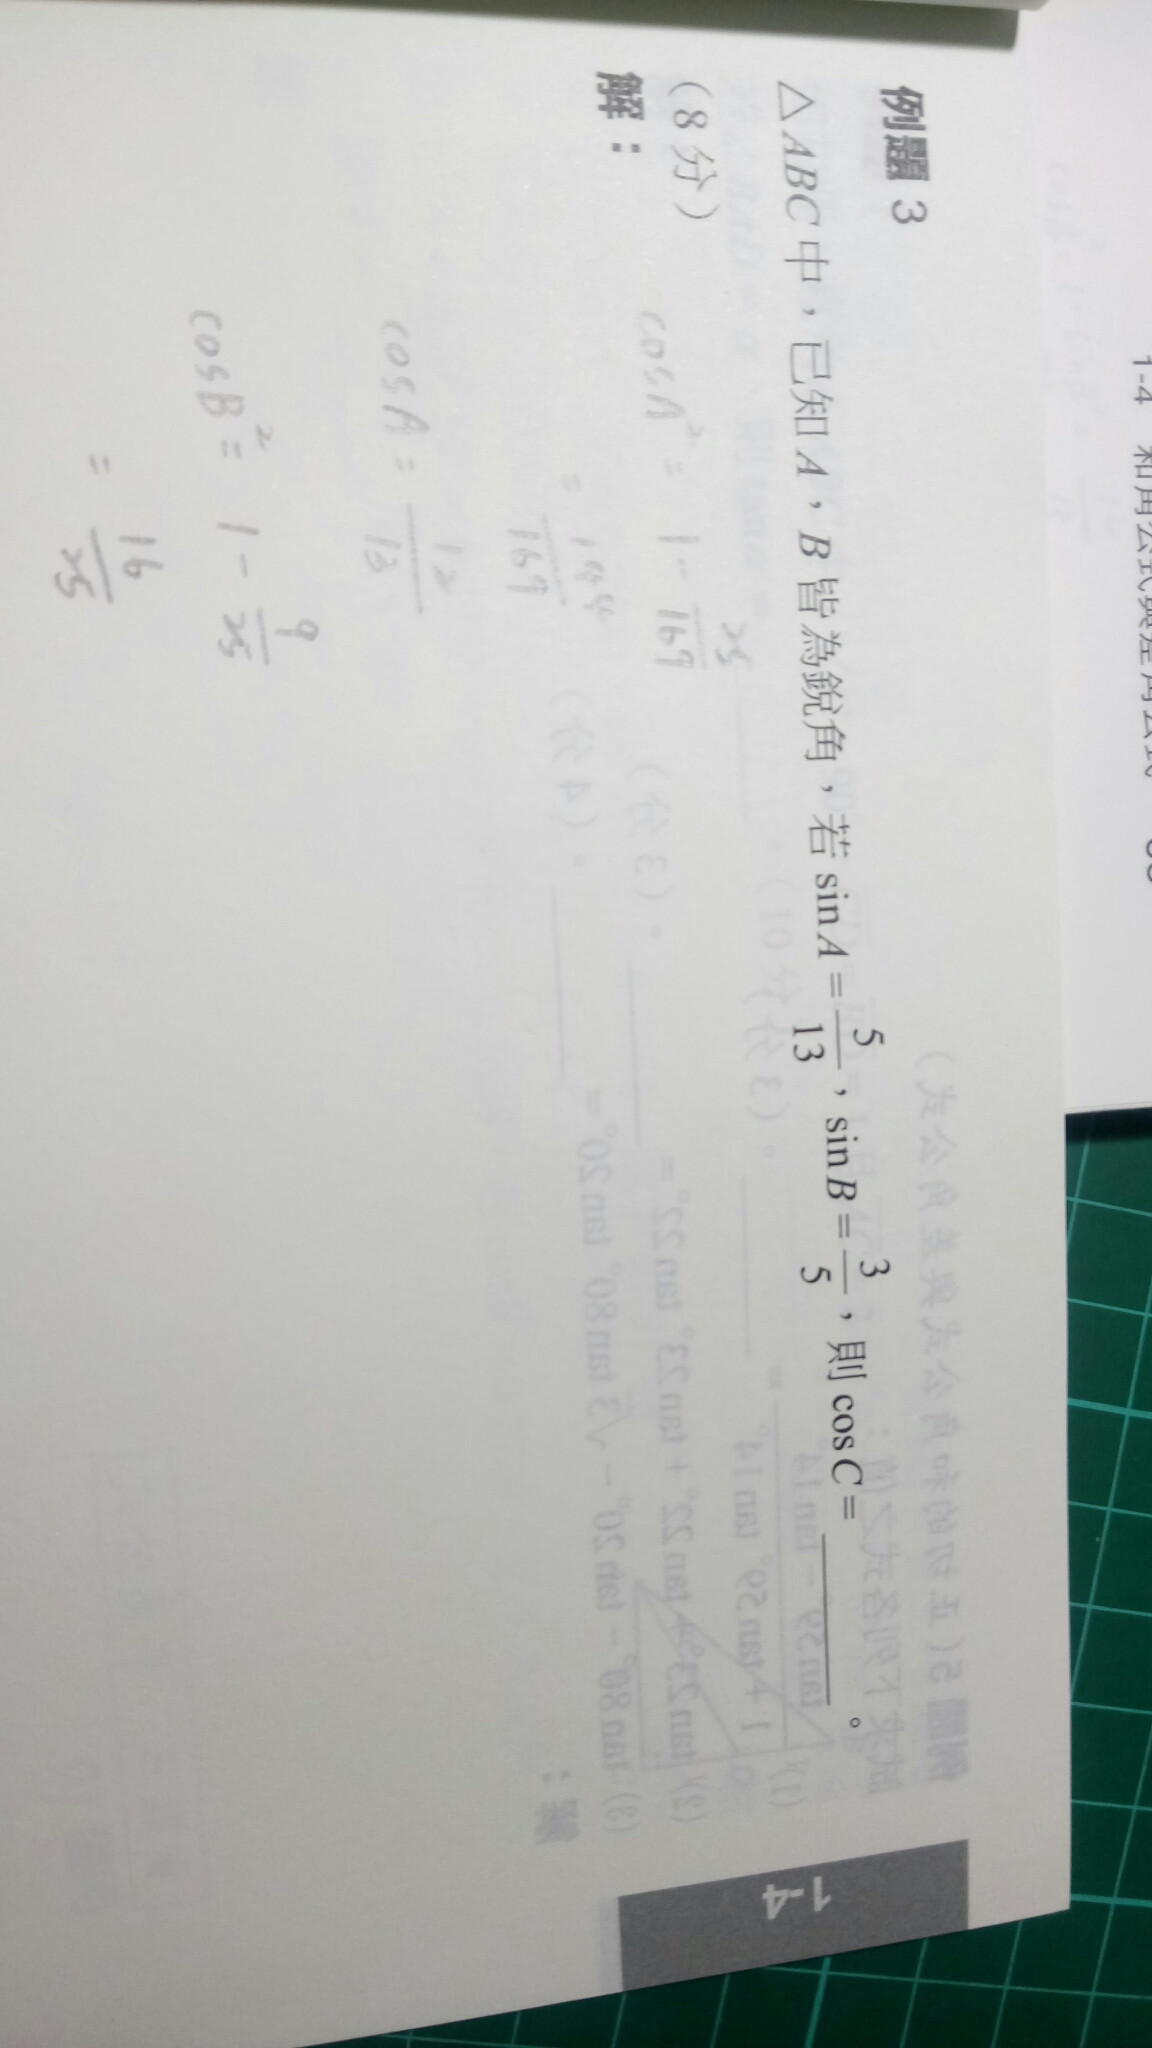 1-4 和角公式與差角公式
例題 3
△ABC 中，已知 A，B 皆為銳角，若 sin A = 5/13，sin B = 3/5，則 cos C = ______。
(8 分)
解：
cos A² = 1 - 25/169
= 144/169
cos A = 12/13
cos B² = 1 - 9/25
= 16/25
1-4